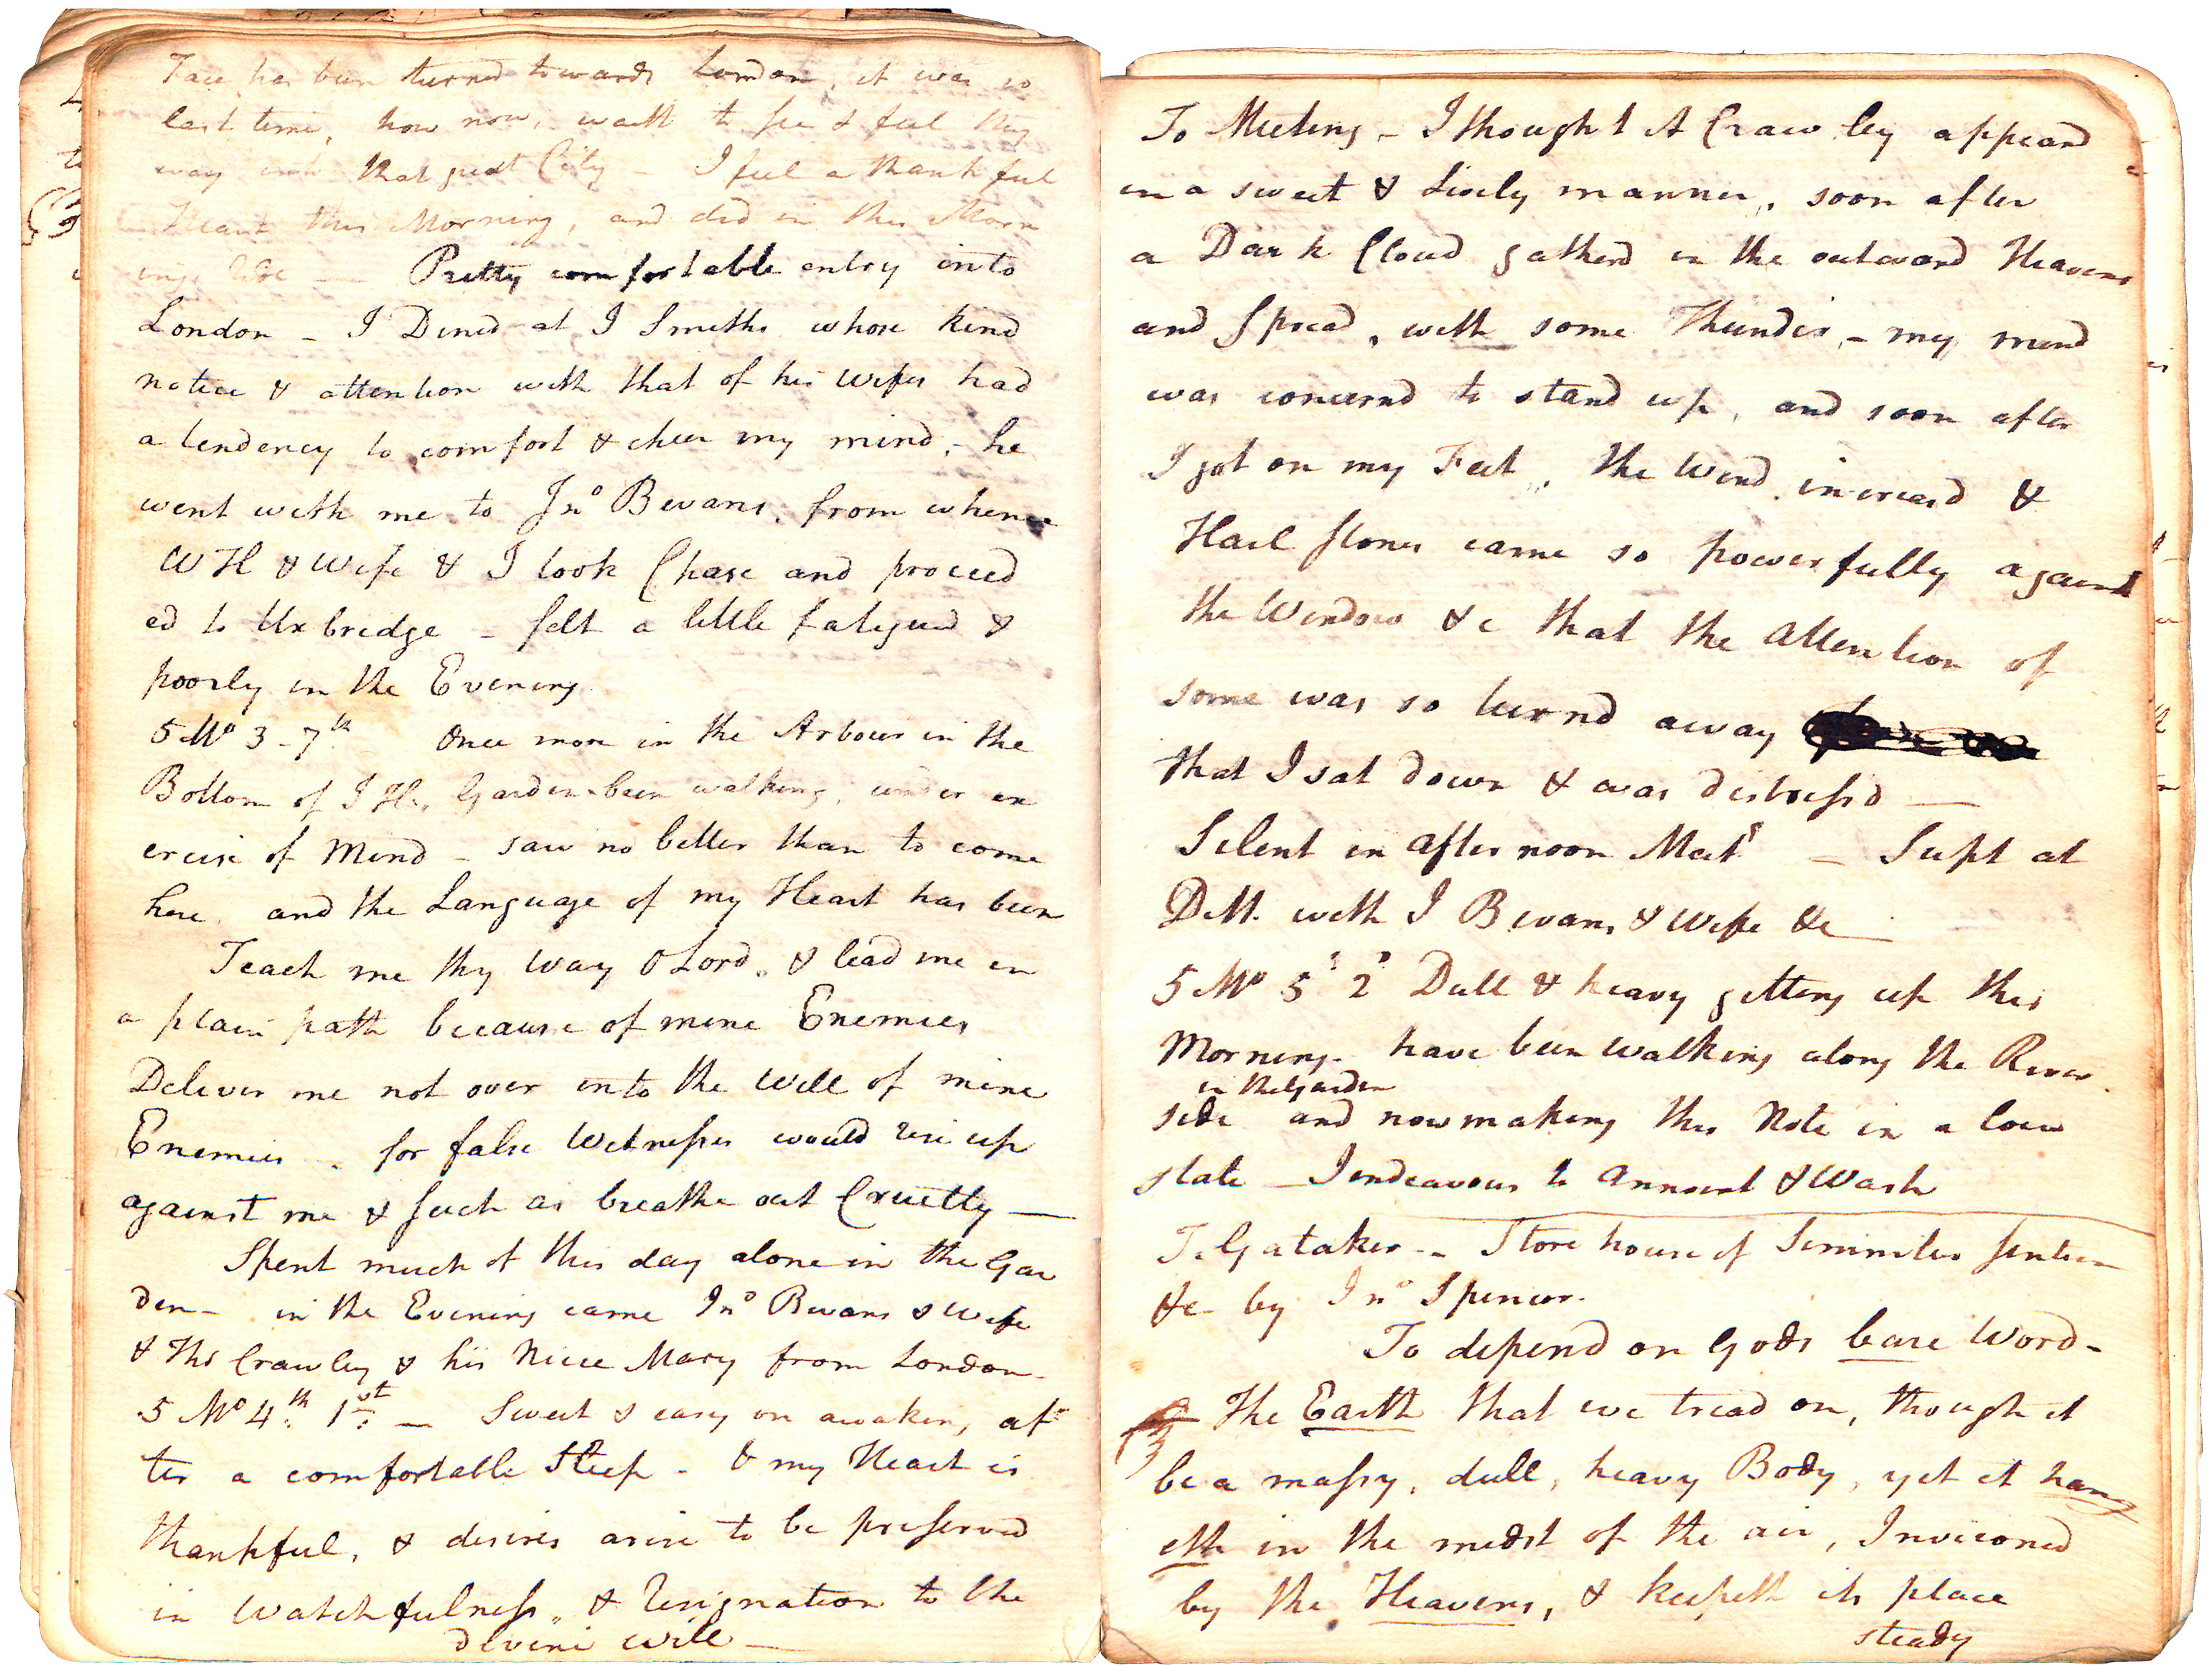 Face has been turned towards London, it was so
last time, how now, wait to see & feel thy
way into that great City – I feel a thankful
Heart this Morning, and did in this Morn
ing
— Pretty comfortable entry into
London – I Dined at I Smiths whose kind
notice & attention with that of his Wifes had
a tendency to comfort & cheer my mind, – he
went with me to Jnº Bevans, from whence
W H & Wife & I took Chase and proceed
ed to Uxbridge – felt a little fatigued &
poorly in the Evening.
5 Mº 3 – 7th Once more in the Arbour in the
Bottom of I Hs, Garden – been walking, under ex
ercise of Mind – saw no better than to come
here, and the Language of my Heart has been
Teach me thy Way O Lord, & lead me in
a plain path because of mine Enemies
Deliver me not over into the Will of mine
Enemies – for false Witnesses would rise up
against me & such as breathe out Cruelty —
Spent much of this day alone in the Gar
den – in the Evening came Jnº Bevans & Wife
& Ths Crawley & his Niece Mary from London –
5 Mº 4th 1st — Sweet & easy on awaking af
ter a comfortable Sleep – & my Heart is
thankful, & desires arise to be preserved
in Watchfulness, & Resignation to the
divine will —
To Meeting – I thought A Crawley appeard
in a sweet & lively manner, soon after
a Dark Cloud gatherd in the outward Heavens
and Spread, with some Thunder, – my mind
was concernd to stand up, and soon after
I got on my Feet, the Wind increasd &
Hail stones came so powerfully against
the Window &c that the Attention of
some was so turnd away
that I sat down & was distressd —
Silent in afternoon Meetg – Supt at
Ditt. with I Bevans & Wife &c —
5 Mº 5 2 Dull & heavy getting up this
Morning – have been walking along the River
in the Garden
side and now making this Note in a low
state – I endeavour to annoint & Wash
T. Gataker – Store house of Simmiles
&c by Jnº Spencer.
To depend on Gods bare Word –
The Earth that we tread on, though it
be a massy, dull, heavy Body, yet it hang
eth in the midst of the air, Invironed
by the Heavens, & keepeth its place
steady